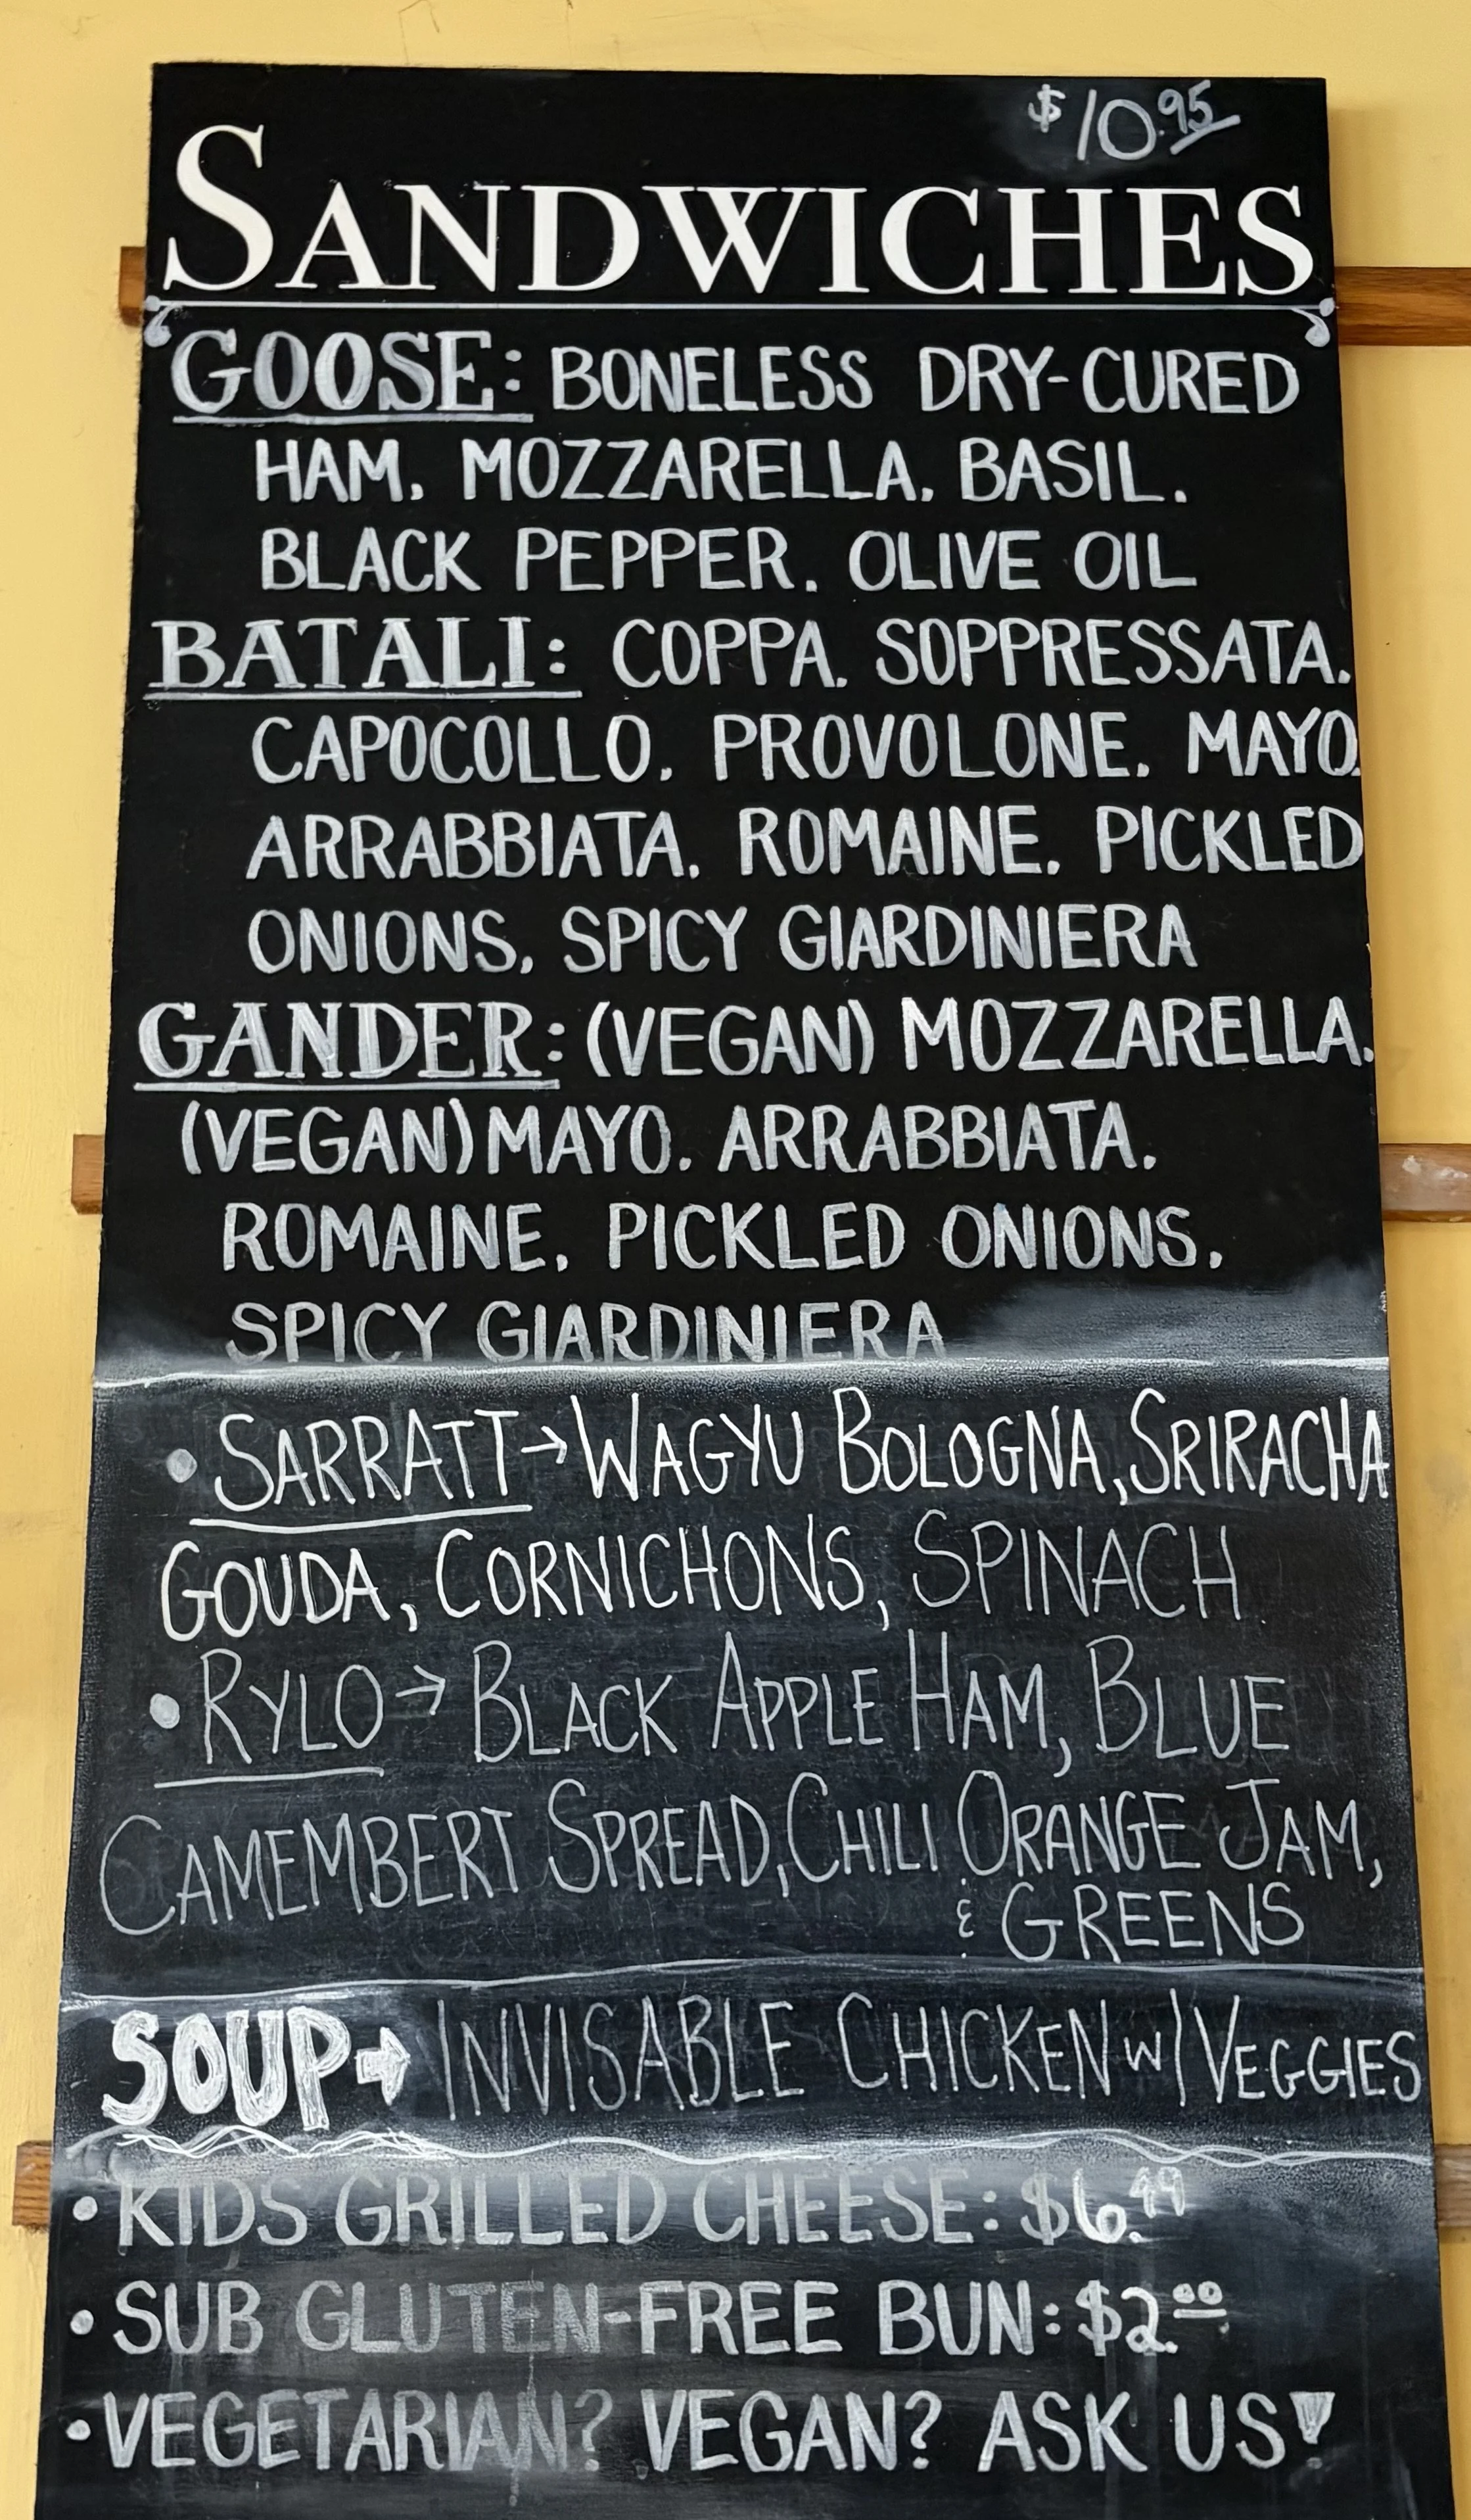 $10.95
SANDWICHES
GOOSE: BONELESS DRY-CURED
HAM, MOZZARELLA, BASIL,
BLACK PEPPER, OLIVE OIL
BATALI: COPPA, SOPPRESSATA,
CAPOCOLLO, PROVOLONE, MAYO,
ARRABBIATA, ROMAINE, PICKLED
ONIONS, SPICY GIARDINIERA
GANDER: (VEGAN) MOZZARELLA,
(VEGAN) MAYO, ARRABBIATA,
ROMAINE, PICKLED ONIONS,
SPICY GIARDINIERA
• SARRATT → WAGYU BOLOGNA, SRIRACHA
GOUDA, CORNICHONS, SPINACH
• RYLO → BLACK APPLE HAM, BLUE
CAMEMBERT SPREAD, CHILI ORANGE JAM,
& GREENS
SOUP → INVISABLE CHICKEN W/ VEGGIES
• KIDS GRILLED CHEESE: $6.49
• SUB GLUTEN-FREE BUN: $2.00
• VEGETARIAN? VEGAN? ASK US!